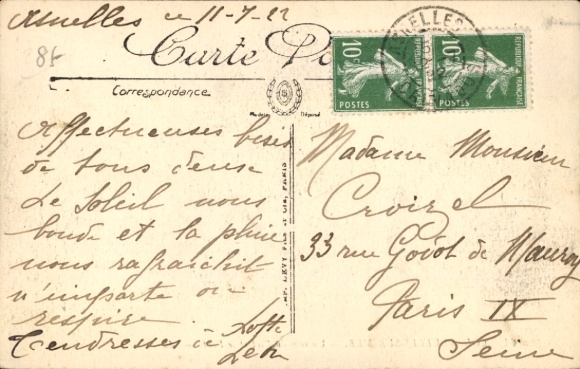 Axuelles ce 11-7-22
8f
Carte Po
Correspondance
Modèle Déposé
10c
10c
POSTES
POSTES
REPUBLIQUE FRANÇAISE
Affectueuses bises
de tous deux
Le Soleil nous
boude et la pluie
nous rafraichit
n'importe on
respire.
Tendresses à
Léon
IMP. LEVY FILS ET Cie, PARIS
Madame Monsieur
Croizel
33 rue Godot de Mauroy
Paris IX
Seine